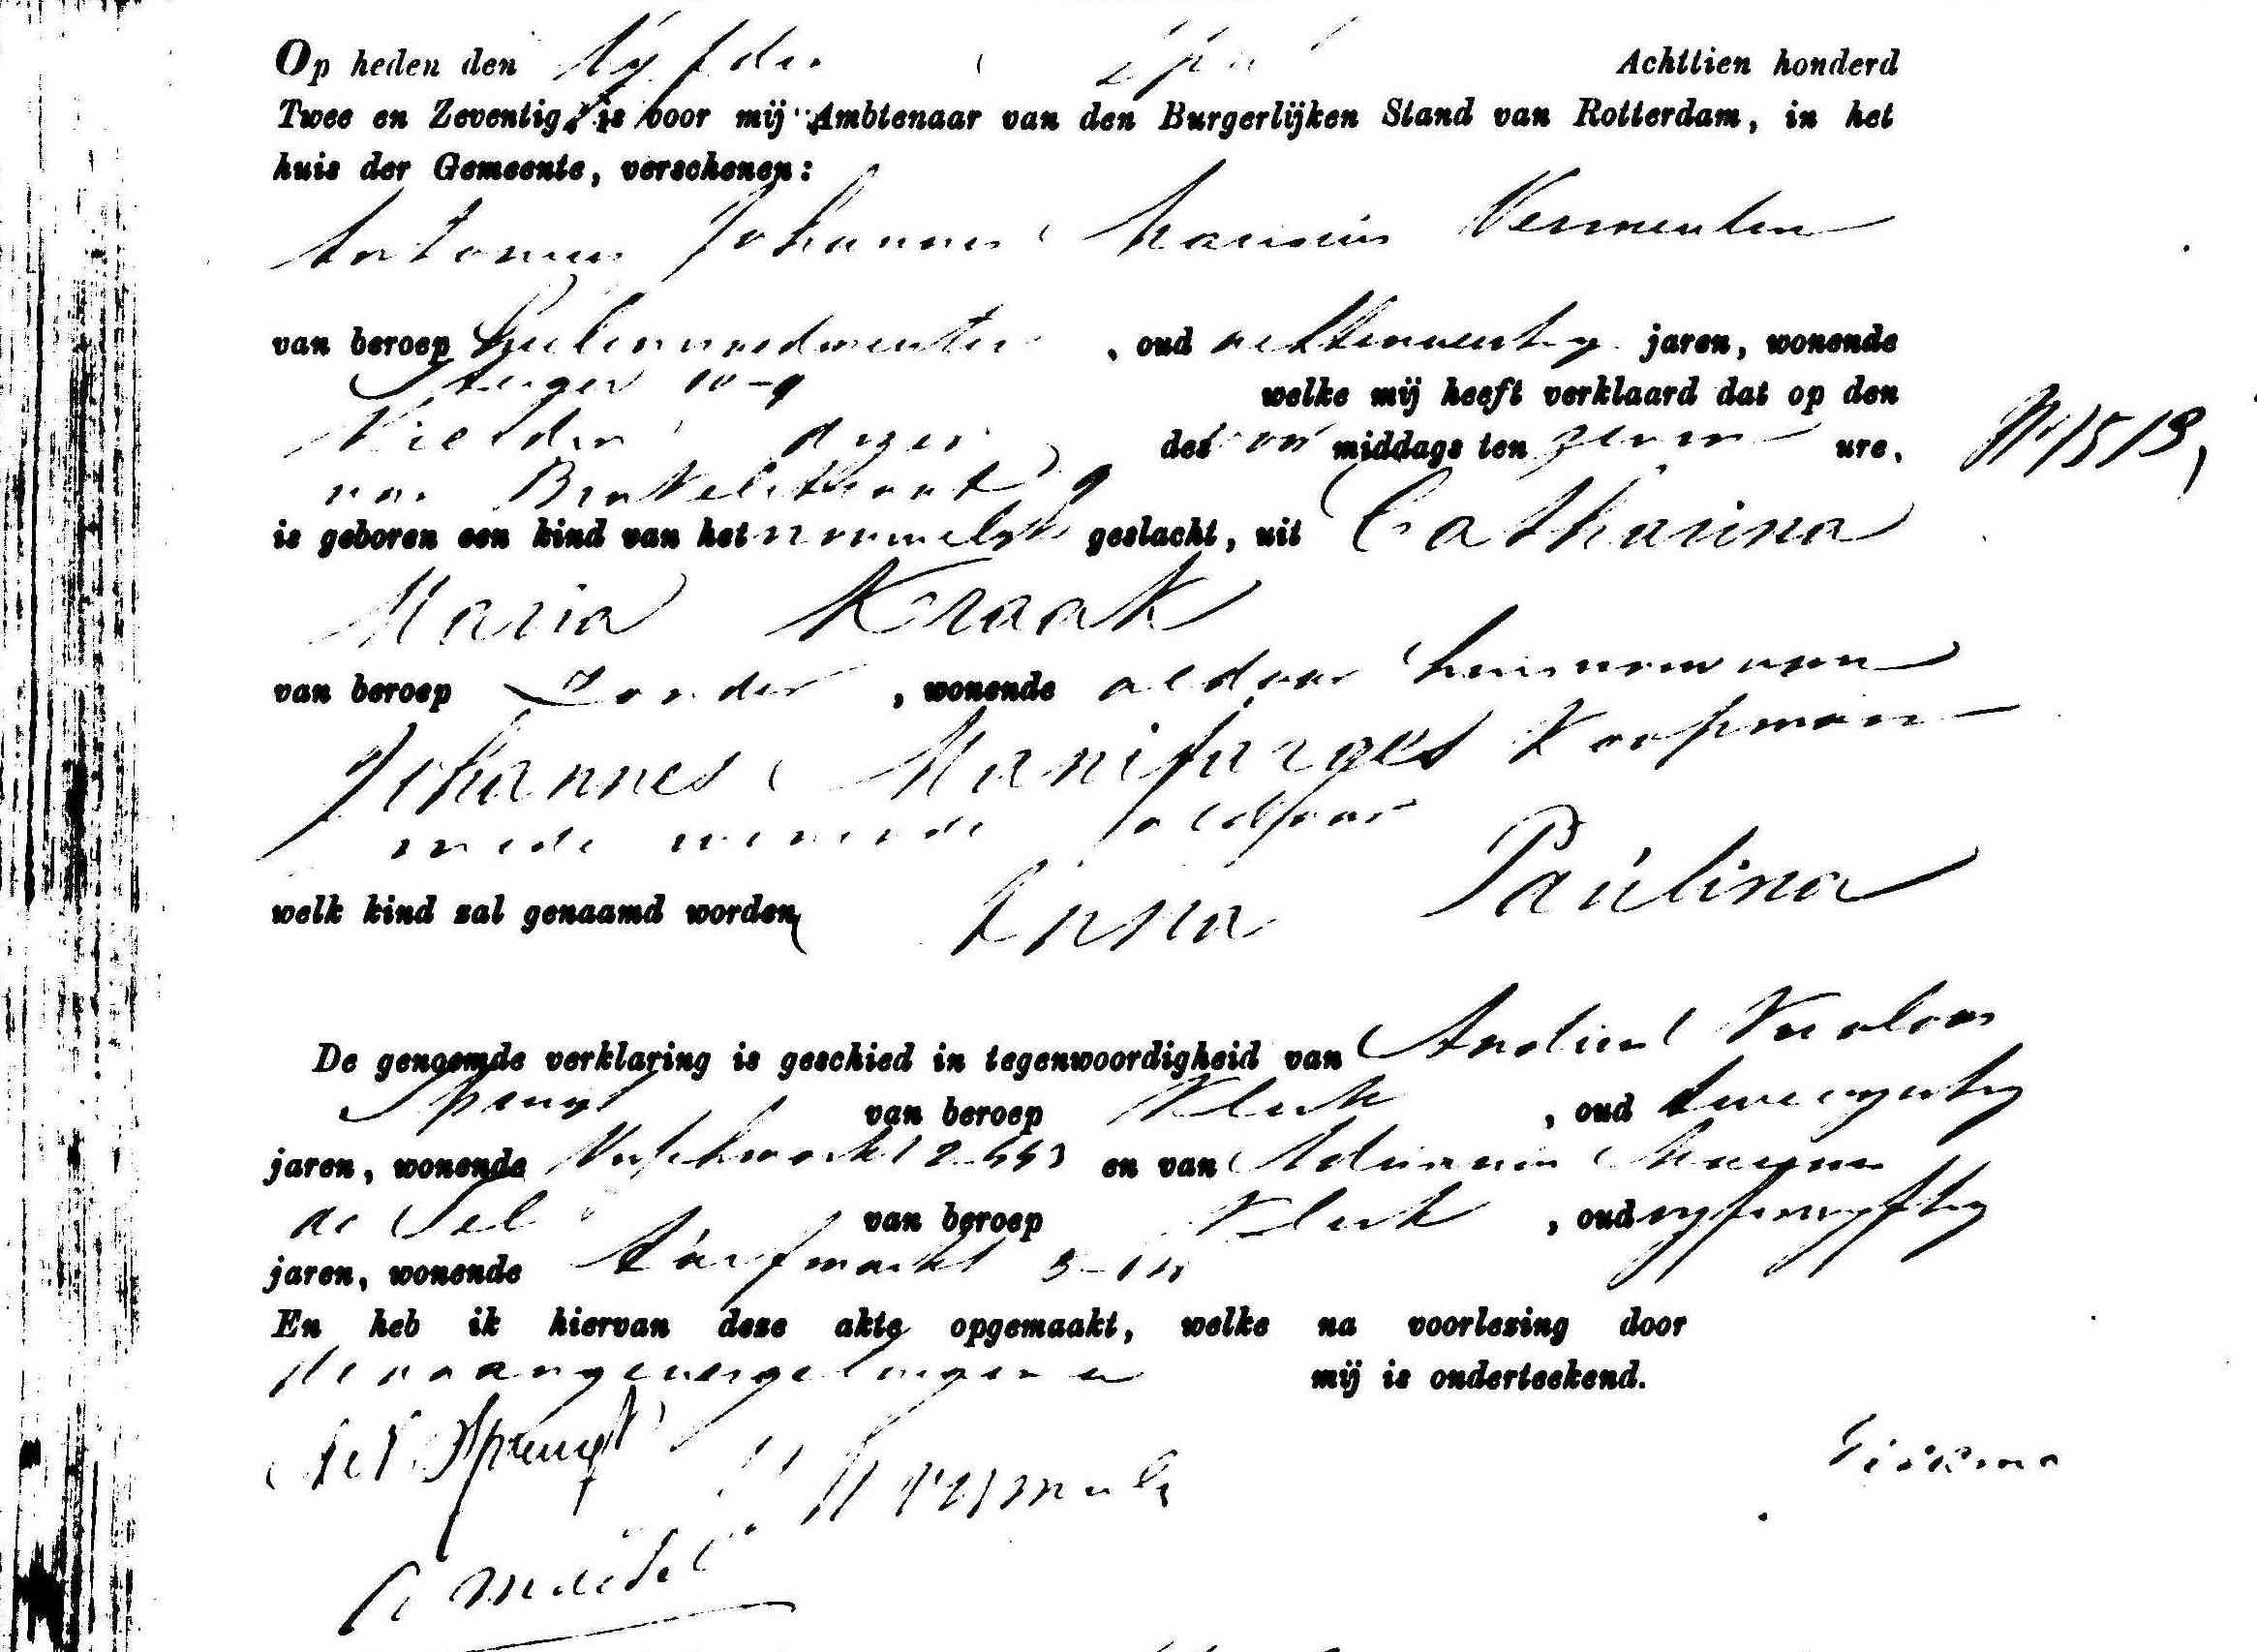 Op heden den Vyfden April Achttien honderd
Twee en Zeventig, is voor mij Ambtenaar van den Burgerlijken Stand van Rotterdam, in het
huis der Gemeente, verschenen:
Antonius Johannes Vermeulen
van beroep , oud achtentwentig jaren, wonende
Steiger 10-9 welke mij heeft verklaard dat op den
Vierden dezer des voor middags ten zeven ure,
No 1513,
van Brakelstraat 9
is geboren een kind van het vrouwelyk geslacht, uit Catharina
Maria Kraak
van beroep Zonder , wonende aldaar huisvrouw van
Johannes Manifarges Koopman
mede wonende aldaar
welk kind zal genaamd worden Anna Paulina
De genoemde verklaring is geschied in tegenwoordigheid van Andries Nicolaas
van beroep Klerk , oud
jaren, wonende en van Adrianus
de Tel van beroep Klerk , oud vyfenvyftig
jaren, wonende Turfmarkt
En heb ik hiervan deze akte opgemaakt, welke na voorlezing door
den aangever getuigen en mij is onderteekend.